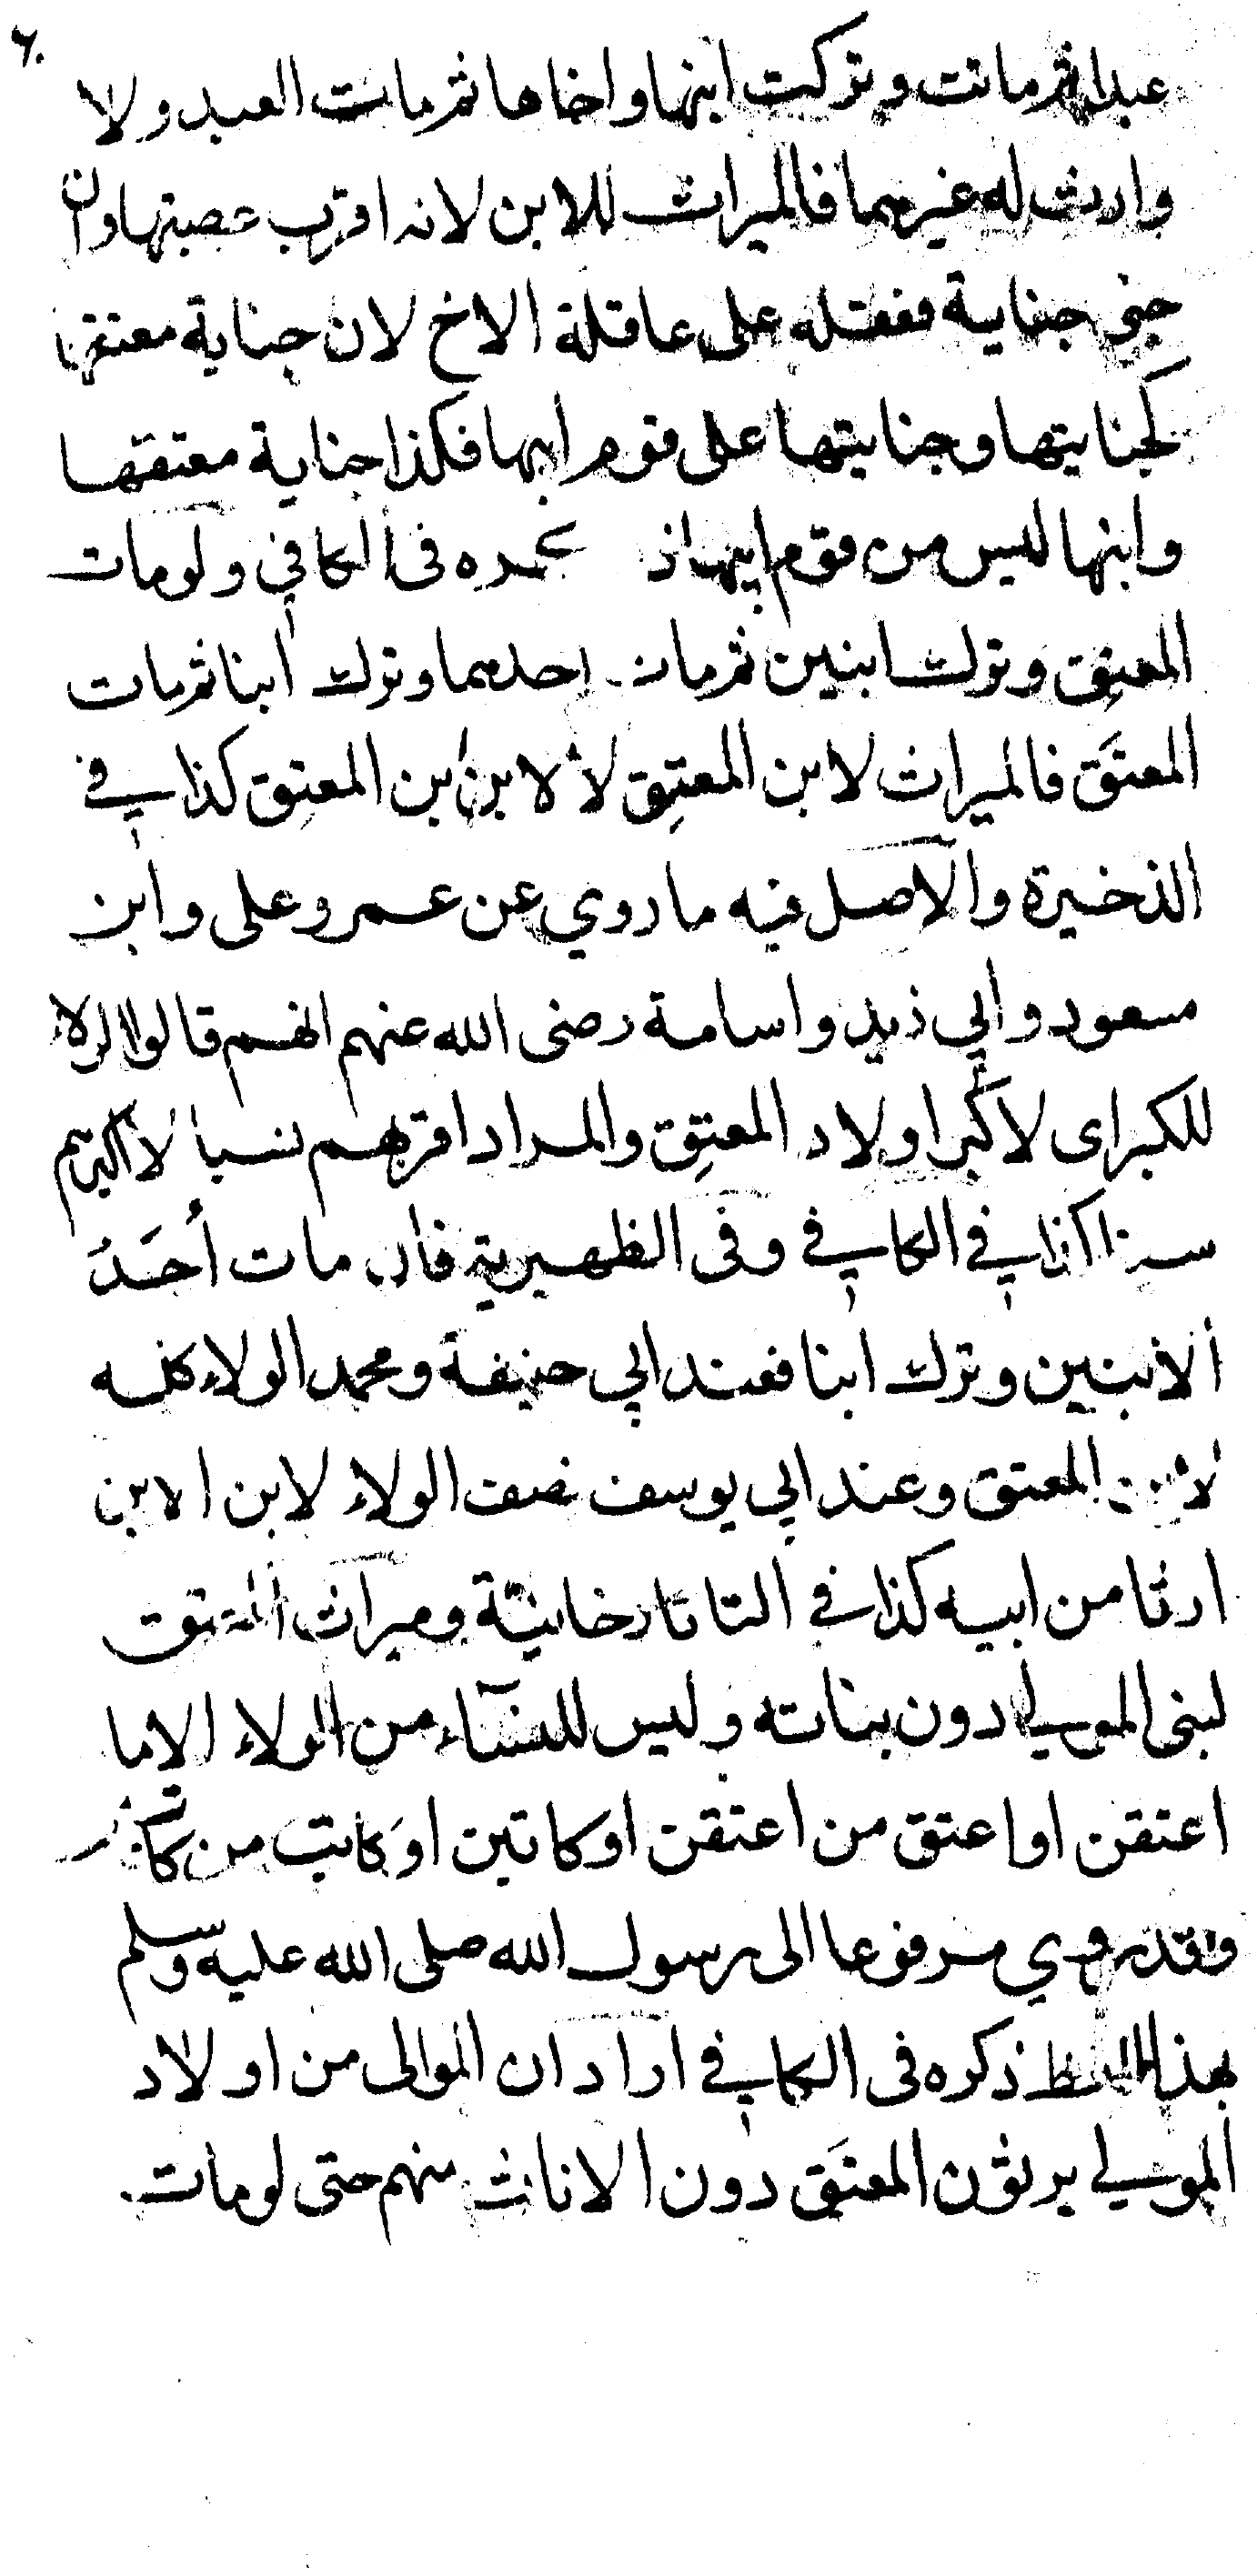 ٦٠
عبدا ثم ماتت وتركت ابنها واخاها ثم مات العبد ولا
وارث له غيرهما فالميراث للابن لانه اقرب عصبتها وان
جنى جناية فعقله على عاقلة الاخ لان جناية معتقها
كجنايتها وجنايتها على قوم ابيها فكذا جناية معتقها
وابنها ليس من قوم ابيها ذ ـحمده فى الكافي ولومات
المعتِق وترك ابنين ثم مات احدهما وترك ابنا ثم مات
المعتَق فالميراث لابن المعتِق لا لابن ابن المعتِق كذا في
الذخيرة والاصل فيه ما روي عن عمر وعلى وابن
مسعود وابي زيد واسامة رضى الله عنهم انهم قالوا الولاء
للكبر اى لاكبر اولاد المعتِق والمراد اقربهم نسبا لا اكبرهم
سنا كذا في الكافي وفى الظهيرية فان مات أحَدُ
الابنين وترك ابنا فعند ابي حنيفة ومحمد الولاء كله
لابن المعتق وعند ابي يوسف نصف الولاء لابن الابن
ارثا من ابيه كذا في التاتارخانية وميراث المعتق
لبنى المولي دون بناته وليس للنساء من الولاء الا ما
اعتقن او اعتق من اعتقن او كاتبن او كاتب من كاتبن
وقد روي مرفوعا الى رسول الله صلى الله عليه وسلم
بهذا اللفظ ذكره فى الكافي اراد ان الموالى من اولاد
المولي يرثون المعتَق دون الاناث منهم حتى لومات